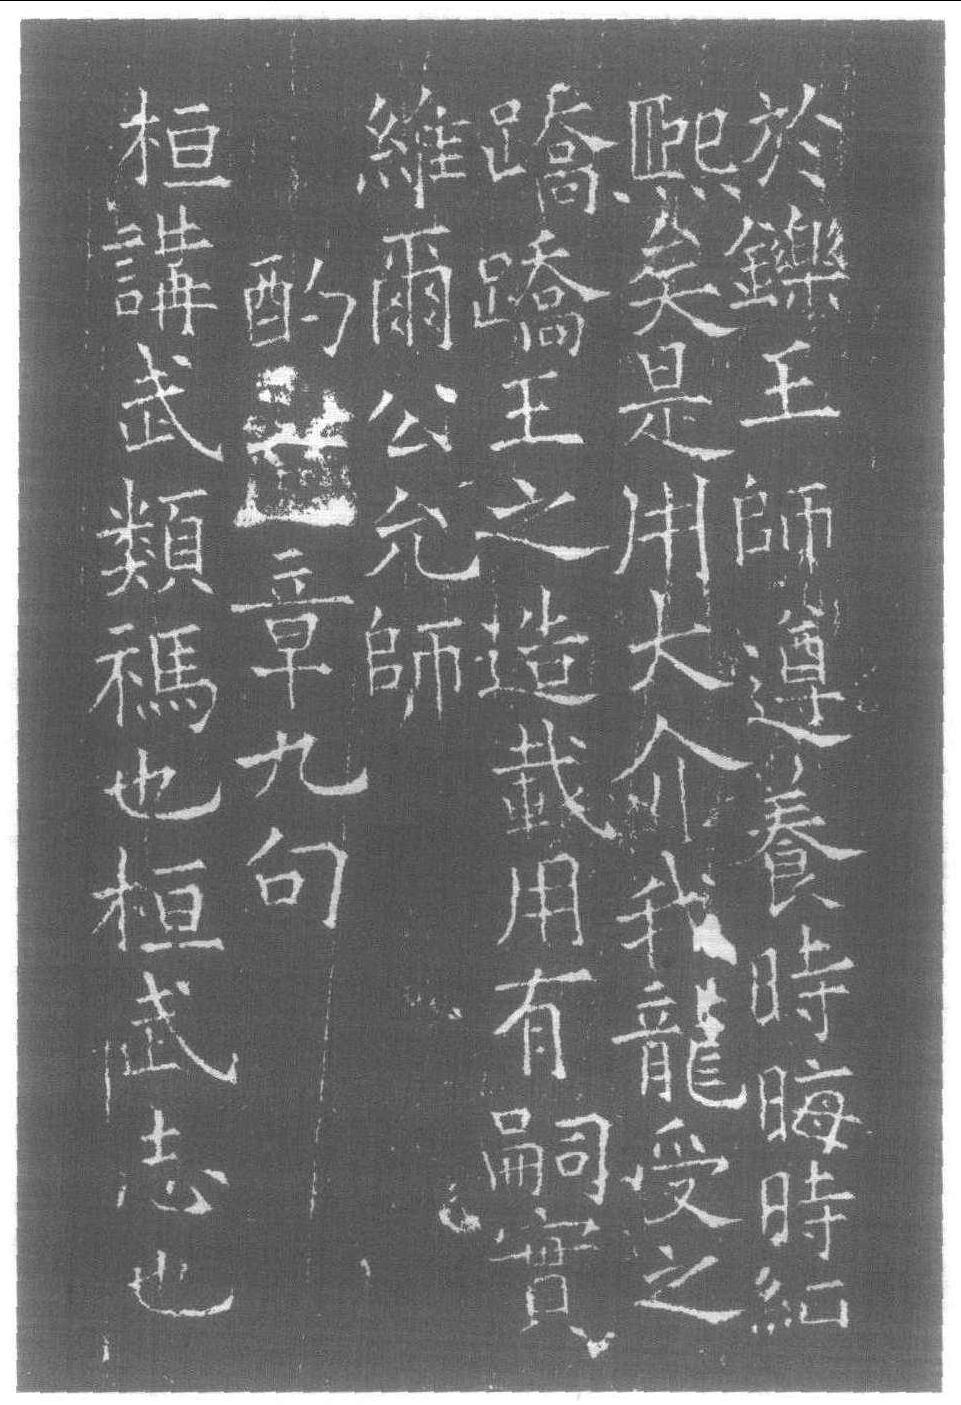 於鑠王師遵養時晦時純
熙矣是用大介我龍受之
蹻蹻王之造載用有嗣實
維爾公允師
酌一章九句
桓講武類禡也桓武志也